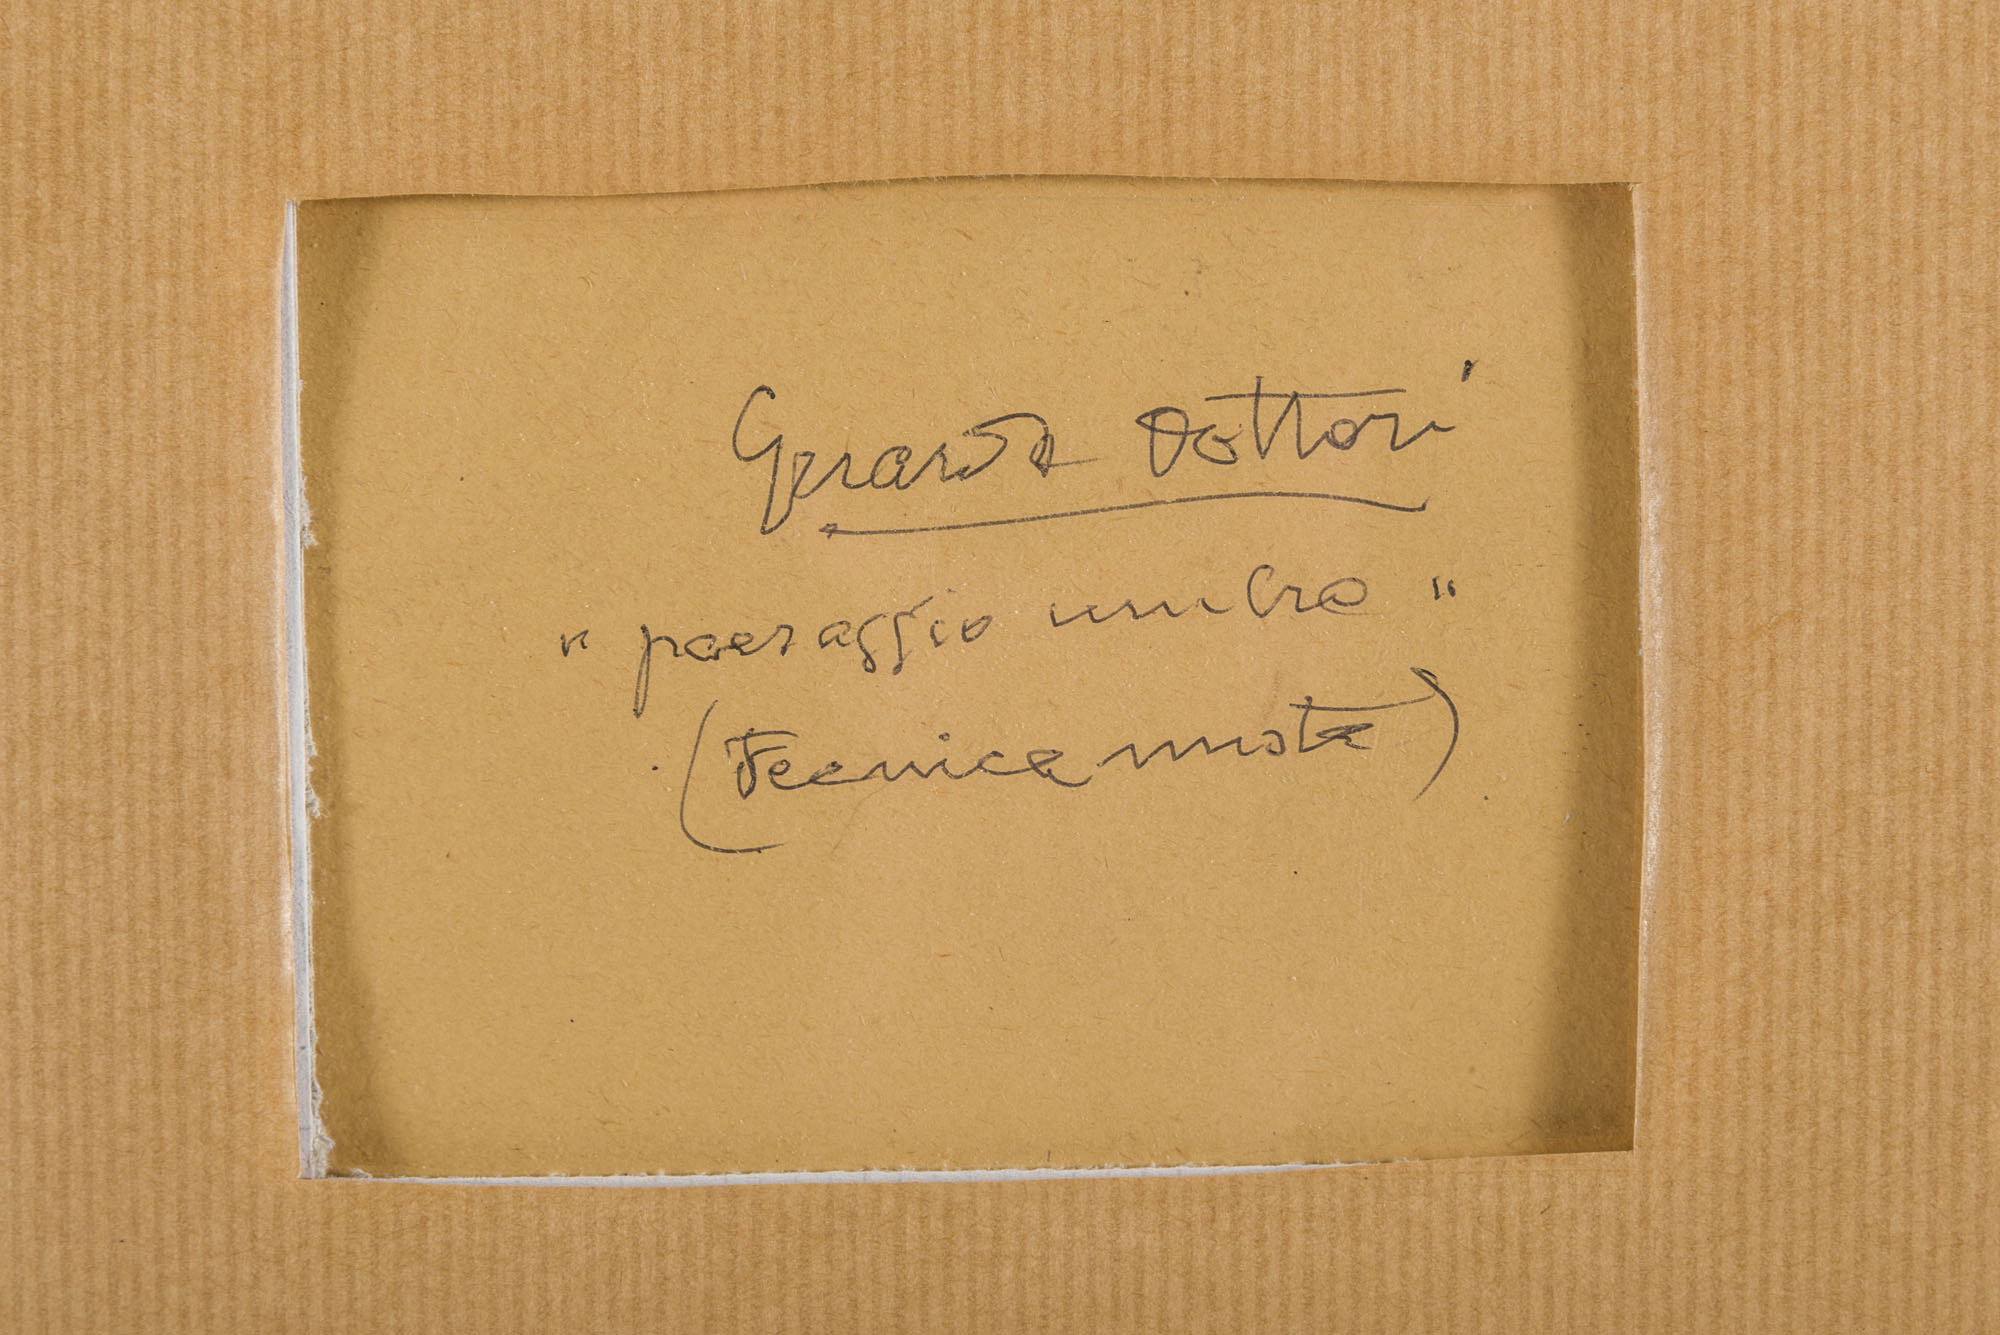 Gerardo Dottori
"paesaggio umbro"
(Tecnica mista)